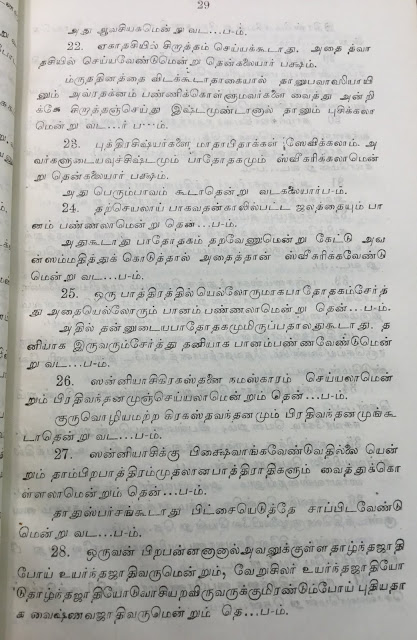 29
அது ஆவசியகமென்று வட...ப-ம்.
22. ஏகாதசியில் சிருத்தம் செய்யக்கூடாது. அதை த்வா
தசியில் செய்யவேண்டுமென்று தென்கலையார் பக்ஷம்.
ம்ருததினத்தை விடக்கூடாதாகையால் தானுபவாஸியாயி
னும் அவராதகனம் பண்ணிக்கொள்ளுமவர்களை வைத்து அன்றி
க்கே சிருத்தஞ்செய்து இஷ்டமுண்டானால் தானும் புசிக்கலா
மென்று வட...ர் ப...ம்.
23. புத்திரசிஷ்யர்களை மாதாபிதாக்கள் ஸேவிக்கலாம். அ
வர்களுடையவுச்சிஷ்டமும் பாதோதகமும் ஸ்வீகரிக்கலாமென்
று தென்கலையார் பக்ஷம்.
அது பெரும்பாவம் கூடாதென்று வடகலையார்ப-ம்.
24. தற்செயலாய் பாகவதன்காலில்பட்ட ஜலத்தையும் பா
னம் பண்ணலாமென்று தென...ப-ம்.
அதுகூடாது பாதோதகம் தரவேணுமென்று கேட்டு அவ
ன்ஸம்மதித்துக் கொடுத்தால் அதைத்தான் ஸ்வீகரிக்கவேண்டு
மென்று வட...ப-ம்.
25. ஒரு பாத்திரத்தில்யெல்லோருமாகபாதோதகம்சேர்த்
து அதையெல்லோரும் பானம்பண்ணலாமென்று தென்...ப-ம்.
அதில் தன்னுடையபாதோதகமுமிருப்பதாலதுகூடாது. த
னியாக இருவரும்சேர்த்து தனியாக பானம்பண்ணவேண்டுமென்
று வட...ப-ம்.
26. ஸன்னியாசிகிரகஸ்தனை நமஸ்காரம் செய்யலாமென்
றும் பிரதிவந்தனமுஞ்செய்யலாமென்றும் தென்...ப-ம்.
குருவொழியமற்ற கிரகஸ்தவந்தனமும் பிரதிவந்தனமுங்கூ
டாதென்று வட...ப-ம்.
27. ஸன்னியாசிக்கு பிக்ஷைவாங்கவேண்டுவதில்லை யென்
றும் தாம்பிரபாத்திரம்முதலானபாத்திராதிகளும் வைத்துக்கொ
ள்ளலாமென்றும் தென்...ப-ம்.
தாதுஸ்பர்சங்கூடாது பிட்சையெடுத்தே சாப்பிடவேண்டு
மென்று வட...ப-ம்.
28. ஒருவன் பிறபன்னனானாலவனுக்குள்ள தாழ்ந்தஜாதி
போய் உயர்ந்தஜாதிவருமென்றும், வேறுசிலர் உயர்ந்தஜாதியோ
டுதாழ்ந்தஜாதியோடுவாசியறவிருவருக்குமிரண்டும்போய் புதியதா
க வைஷ்ணவஜாதிவருமென்றும் தெ...ப-ம்.